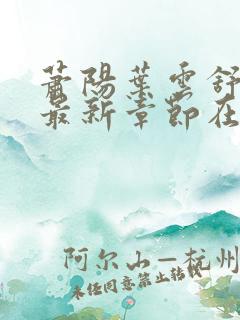 萧陽葉雲舒
最新章節在
阿尔山—杭州
未经同意禁止转载